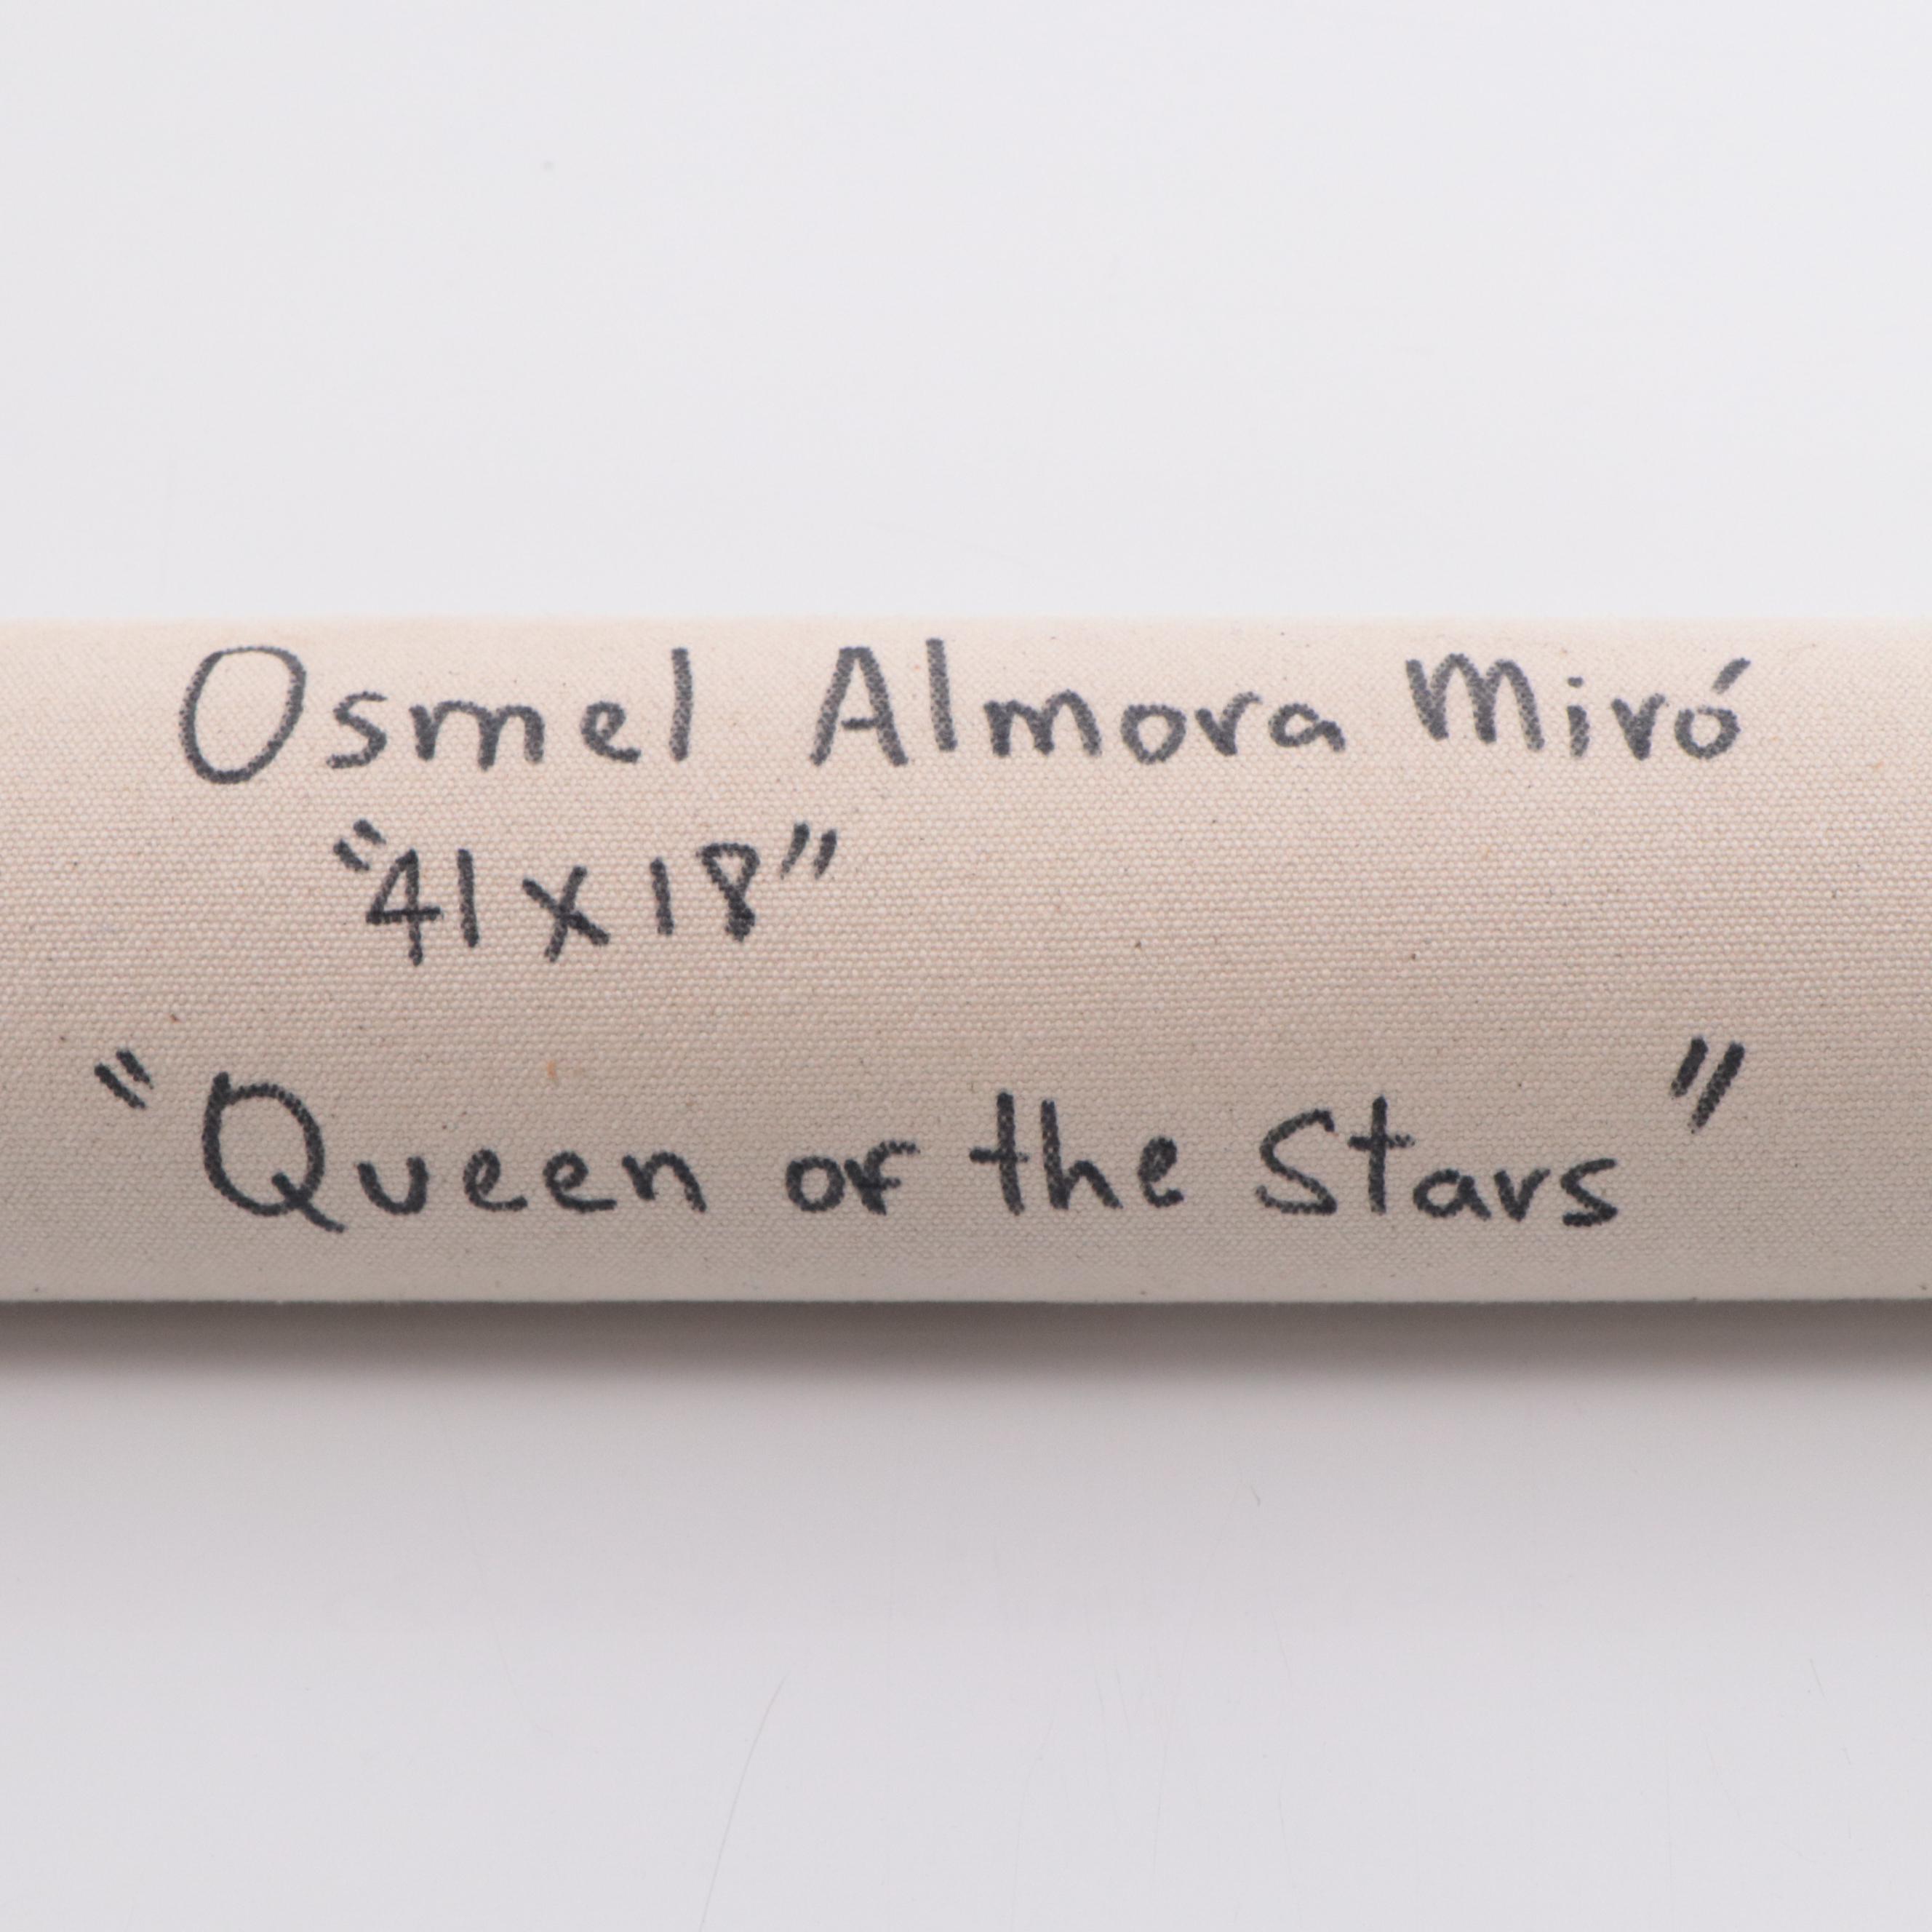 Osmel Almora Miró
"41x18"
"Queen of the Stars"